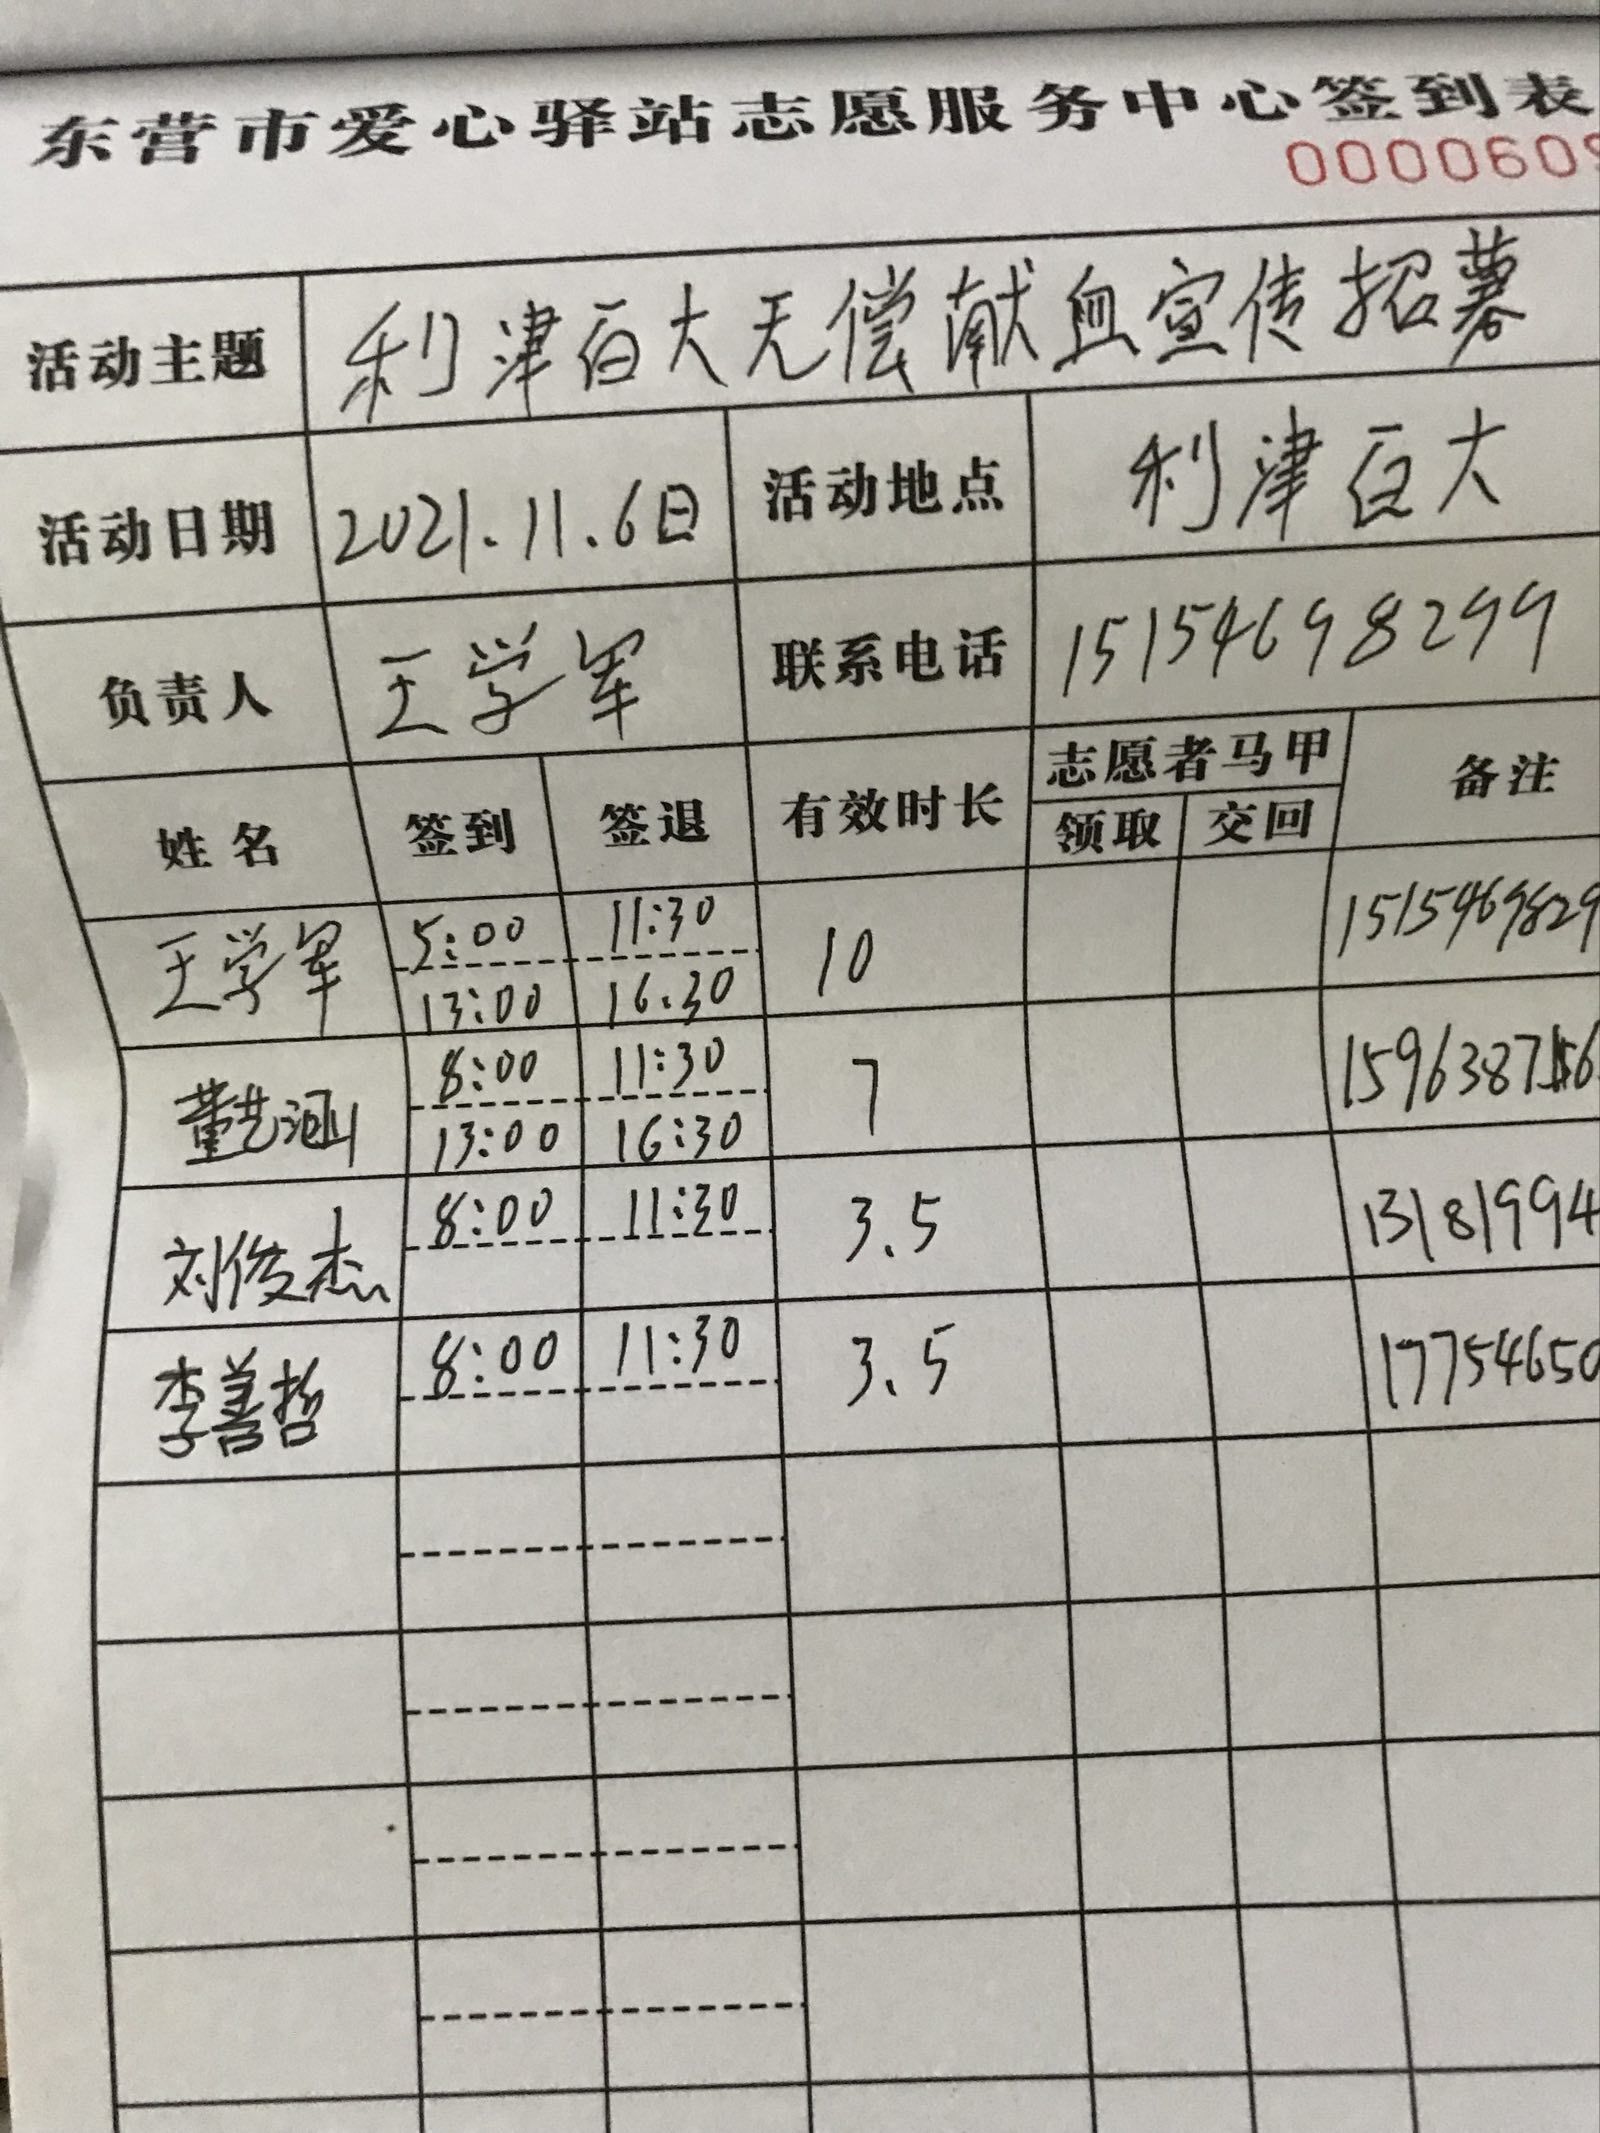 东营市爱心驿站志愿服务中心签到表
0000609
活动主题 利津百大无偿献血宣传招募
活动日期 2021.11.6日 活动地点 利津百大
负责人 王学军 联系电话 15154698299
姓名 签到 签退 有效时长 志愿者马甲 备注
领取 交回
王学军 5:00 11:30 10 1515469829
13:00 16.30
董艺涵 8:00 11:30 7
13:00 16:30
刘俊杰 8:00 11:30 3.5 13181994
李善哲 8:00 11:30 3.5 17754650